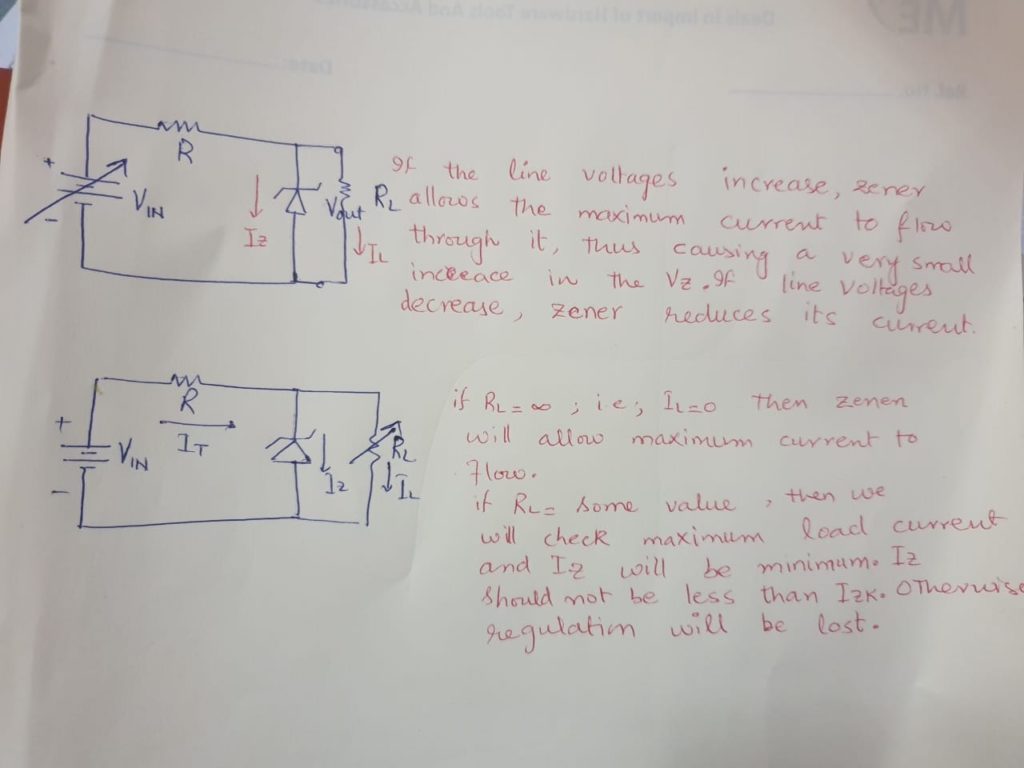 Deals in Import of Hardware Tools And Accessories
ME
Date:
Ref. No.
R
+
VIN
-
Iz
Vout
RL
IL
If the line voltages increase, zener
allows the maximum current to flow
through it, thus causing a very small
increace in the Vz. If line voltages
decrease, zener reduces its current.
R
+
IT
VIN
-
Iz
RL
IL
if RL = ∞ ; i e; IL=0 then zener
will allow maximum current to
flow.
if RL= some value, then we
will check maximum load current
and Iz will be minimum. Iz
should not be less than IZK. Otherwise
regulation will be lost.